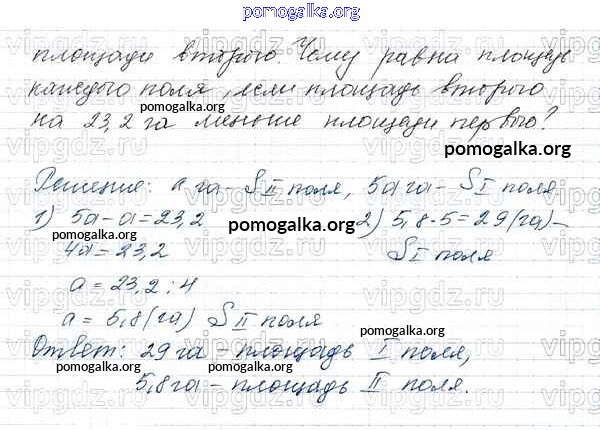 pomogalka.org
площади второго. Чему равна площадь
каждого поля, если площадь второго
pomogalka.org
на 23,2 га меньше площади первого?
pomogalka.org
Решение: а га – S II поля, 5а га – S I поля
pomogalka.org
1) 5а – а = 23,2 2) 5,8 · 5 = 29 (га) –
pomogalka.org
4а = 23,2 S I поля
а = 23,2 : 4
а = 5,8 (га) S II поля
pomogalka.org
Ответ: 29 га – площадь I поля,
pomogalka.org pomogalka.org
5,8 га – площадь II поля.
pomogalka.org
vipgdz.ru